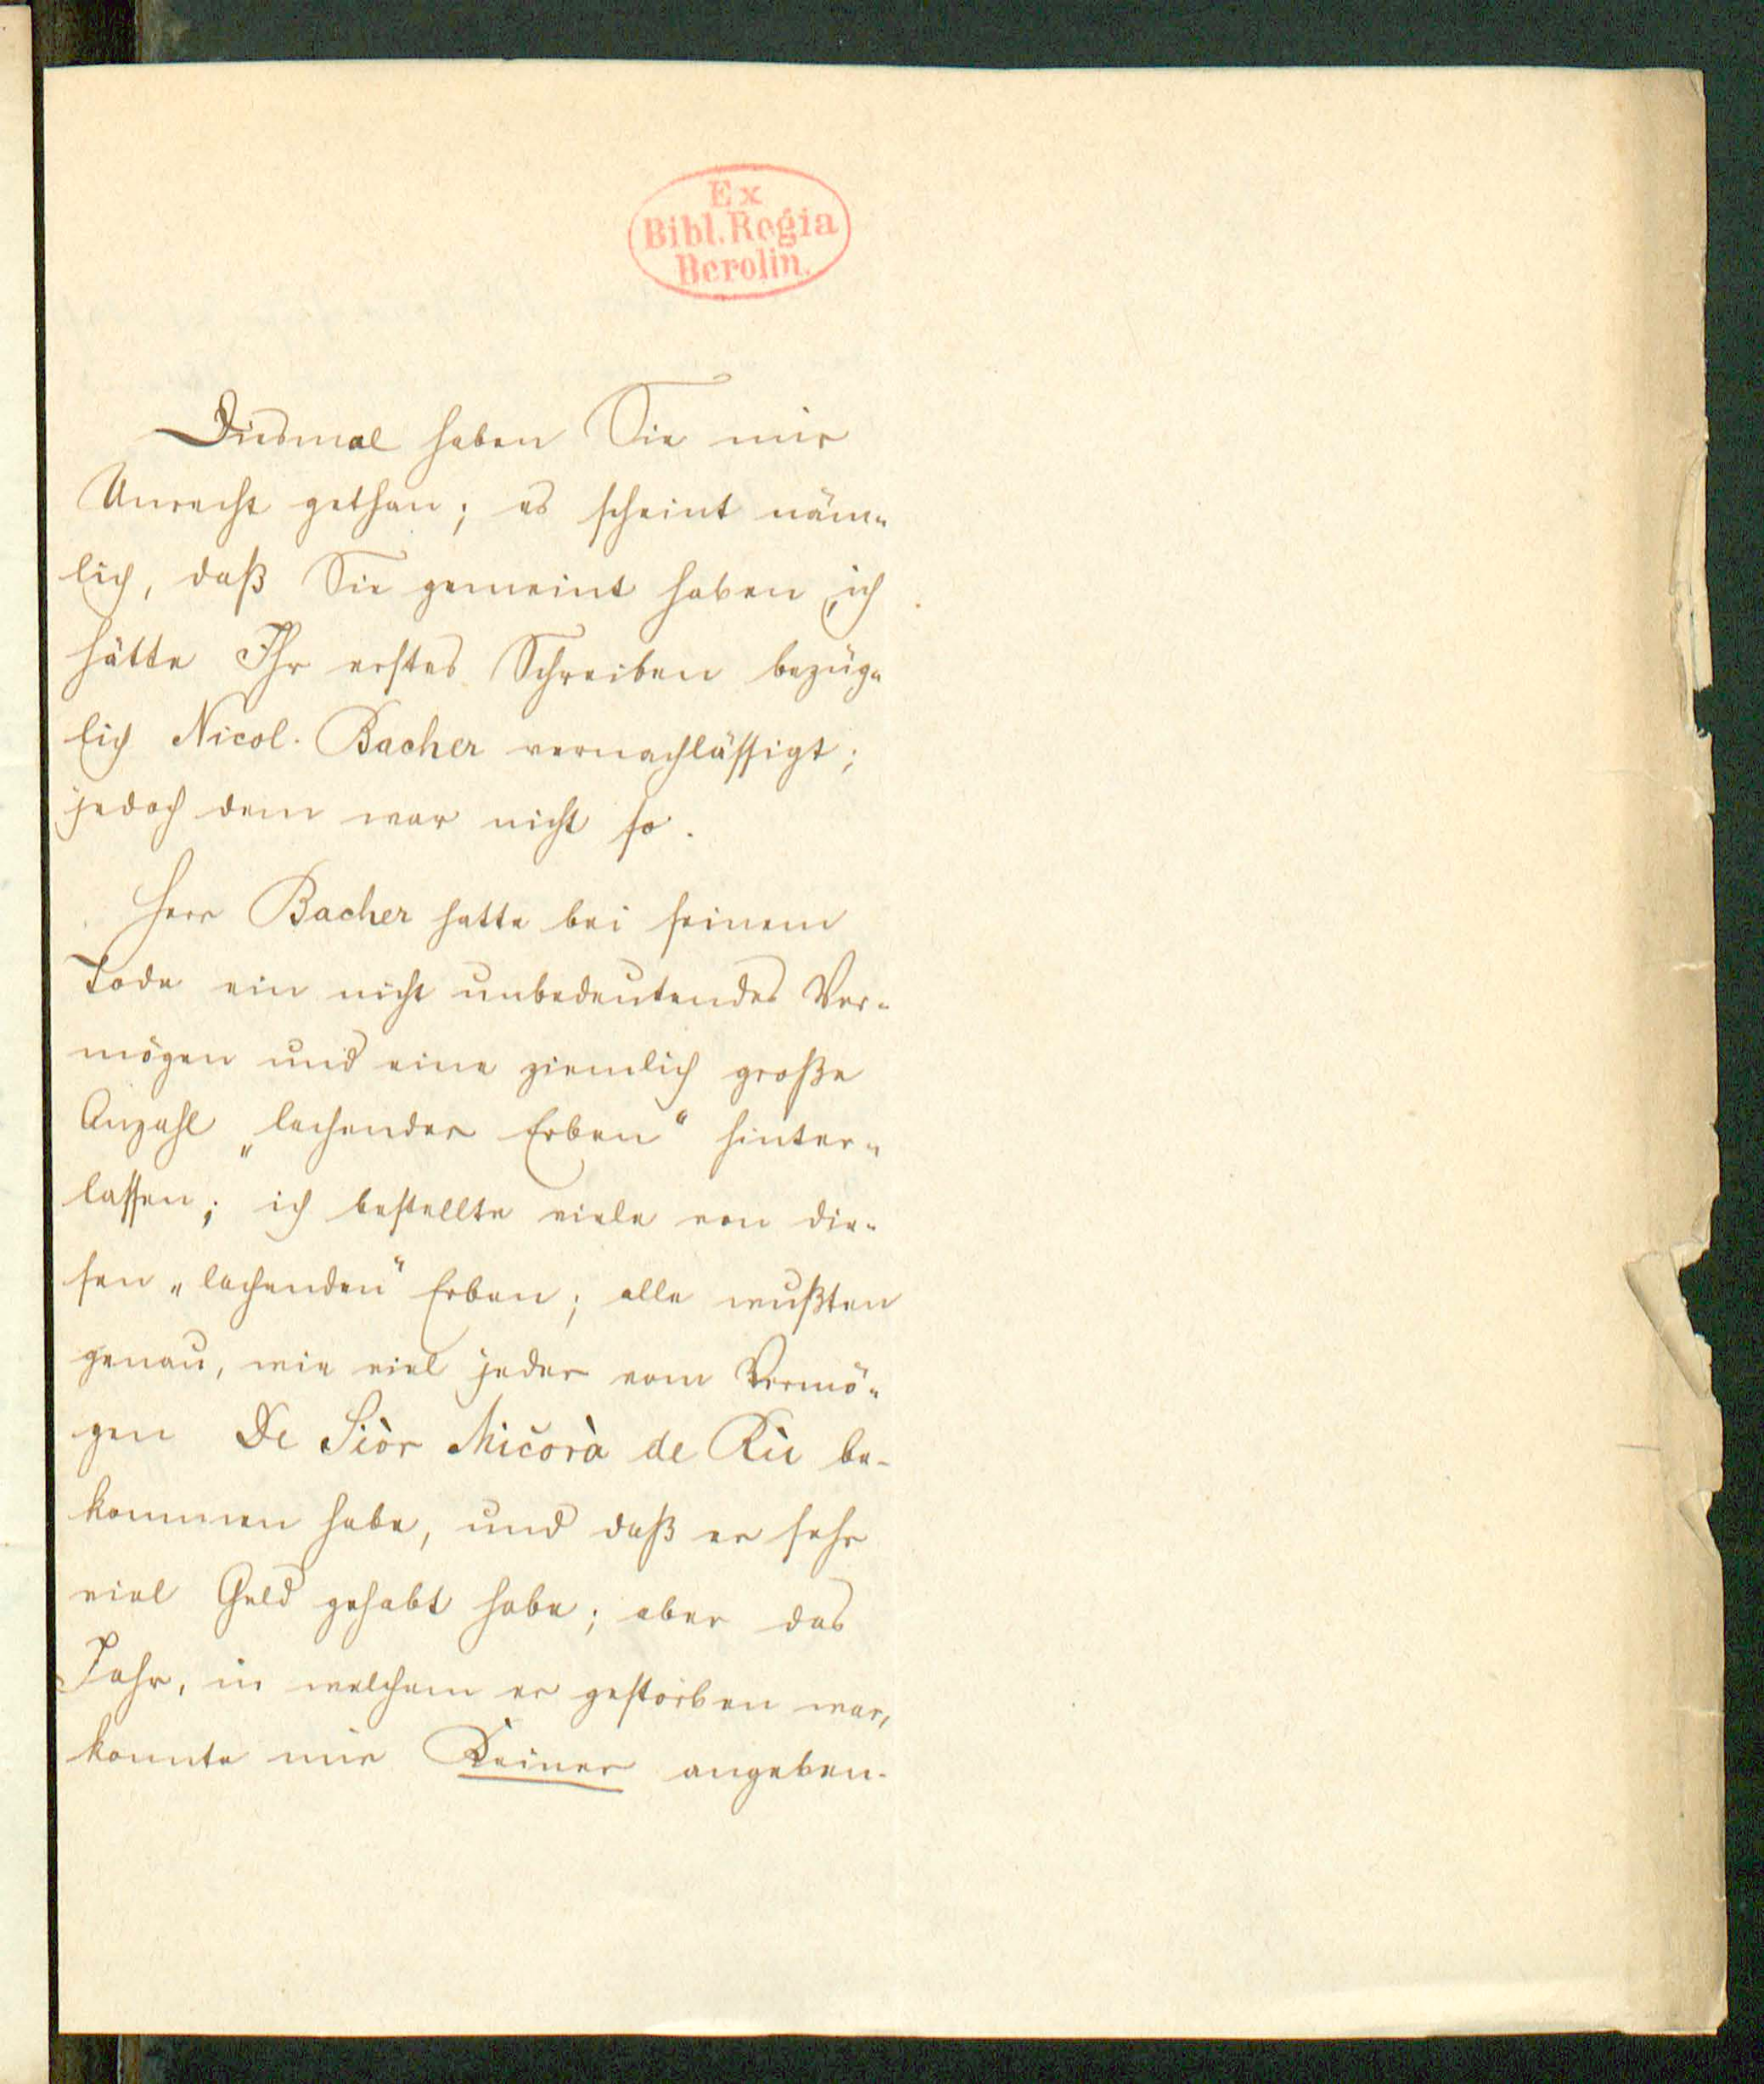 Ex
Bibl. Regia
Berolin.
Diesmal haben Sie mir
Unrecht gethan; es scheint näm-
lich, daß Sie gemeint haben, ich
hätte Ihr erstes Schreiben bezüg-
lich Nicol. Bacher vernachlässigt;
jedoch dem war nicht so.
Herr Bacher hatte bei seinem
Tode ein nicht unbedeutendes Ver-
mögen und eine ziemlich große
Anzahl „lachender Erben“ hinter-
lassen; ich bestellte viele von die-
sen „lachenden“ Erben; alle wußten
genau, wie viel jeder vom Vermö-
gen De Siòr Micorà de Rü be-
kommen habe, und daß er sehr
viel Geld gehabt habe; aber das
Jahr, in welchem er gestorben war,
konnte mir Keiner angeben.